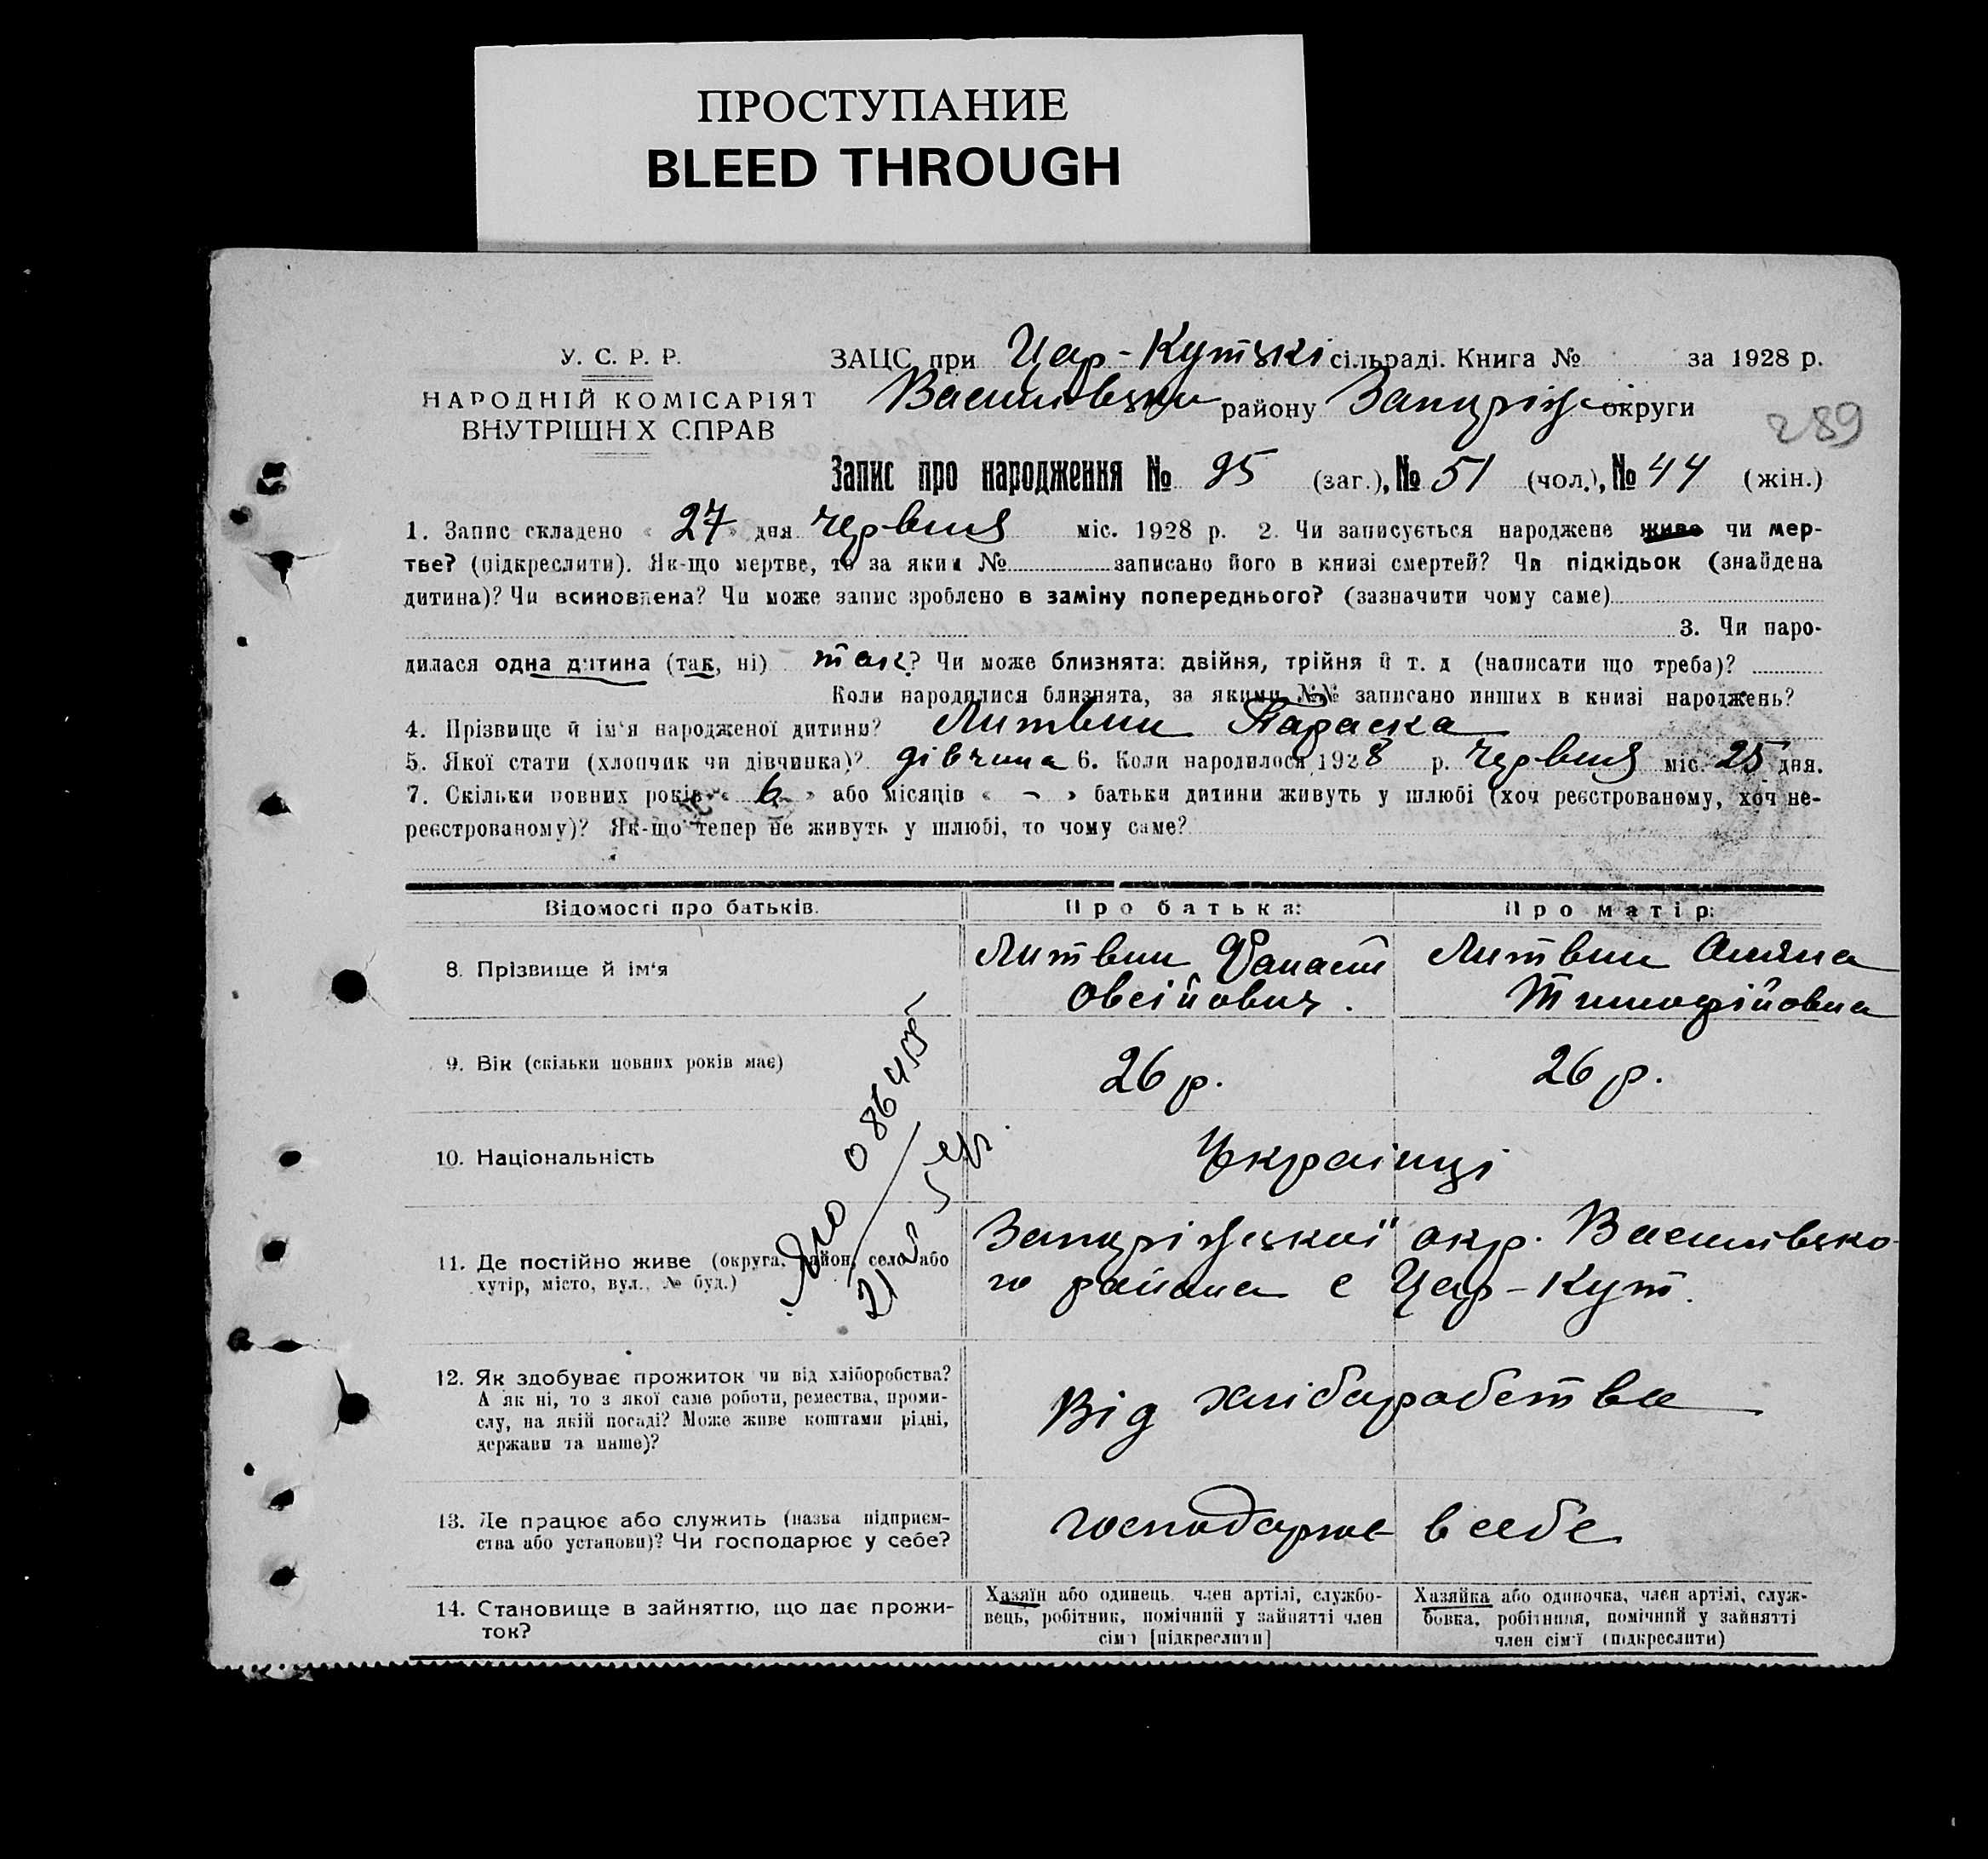 ПРОСТУПАНИЕ
BLEED THROUGH
У. С. Р. Р.
НАРОДНІЙ КОМІСАРІЯТ
ВНУТРІШН Х СПРАВ
ЗАЦС при Цар-Кутські сільраді. Книга № за 1928 р.
району Запоріз. округи
289
Запис про народження № 95 (заг.), № 51 (чол.), № 44 (жін.)
1. Запис складено « 27 » дня червня міс. 1928 р. 2. Чи записується народжене живе чи мер-
тве? (підкреслити). Як-що мертве, то за яким № записано його в книзі смертей? Чи підкідьок (знайдена
дитина)? Чи всиновлена? Чи може запис зроблено в заміну попереднього? (зазначити чому саме)
3. Чи наро-
дилася одна дитина (так, ні) так? Чи може близнята: двійня, трійня й т. д (написати що треба)?
Коли народилися близнята, за якими №№ записано инших в книзі народжень?
4. Прізвище й ім'я народженої дитини? Литвин Параска
5. Якої стати (хлопчик чи дівчинка)? дівчина 6. Коли народилося 1928 р. червня міс. 25 дня.
7. Скільки повних років « 6 » або місяців « - » батьки дитини живуть у шлюбі (хоч реєстрованому, хоч не-
реєстрованому)? Як-що тепер не живуть у шлюбі, то чому саме?
Відомості про батьків.
Про батька:
Про матір:
8. Прізвище й ім'я
Литвин Панаст
Овсійович.
Литвин
Тимофійовна
9. Вік (скільки повних років має)
26 р.
26 р.
10. Національність
Українці
11. Де постійно живе (округа, район, село або
хутір, місто, вул., № буд.)
Запорізської окр. Василівсько-
го района с Цар-Кут.
12. Як здобуває прожиток чи від хліборобства?
А як ні, то з якої саме роботи, ремества, проми-
слу, на якій посаді? Може живе коштами рідні,
держави та инше)?
Від хліборобства
13. Де працює або служить (назва підприєм-
ства або установи)? Чи господарює у себе?
господарює в себе
14. Становище в зайняттю, що дає прожи-
ток?
Хазяїн або одинець, член артілі, службо-
вець, робітник, помічний у зайнятті член
сім'ї [підкреслити]
Хазяйка або одиночка, член артілі, служ-
бовка, робітниця, помічний у зайнятті
член сім'ї (підкреслити)